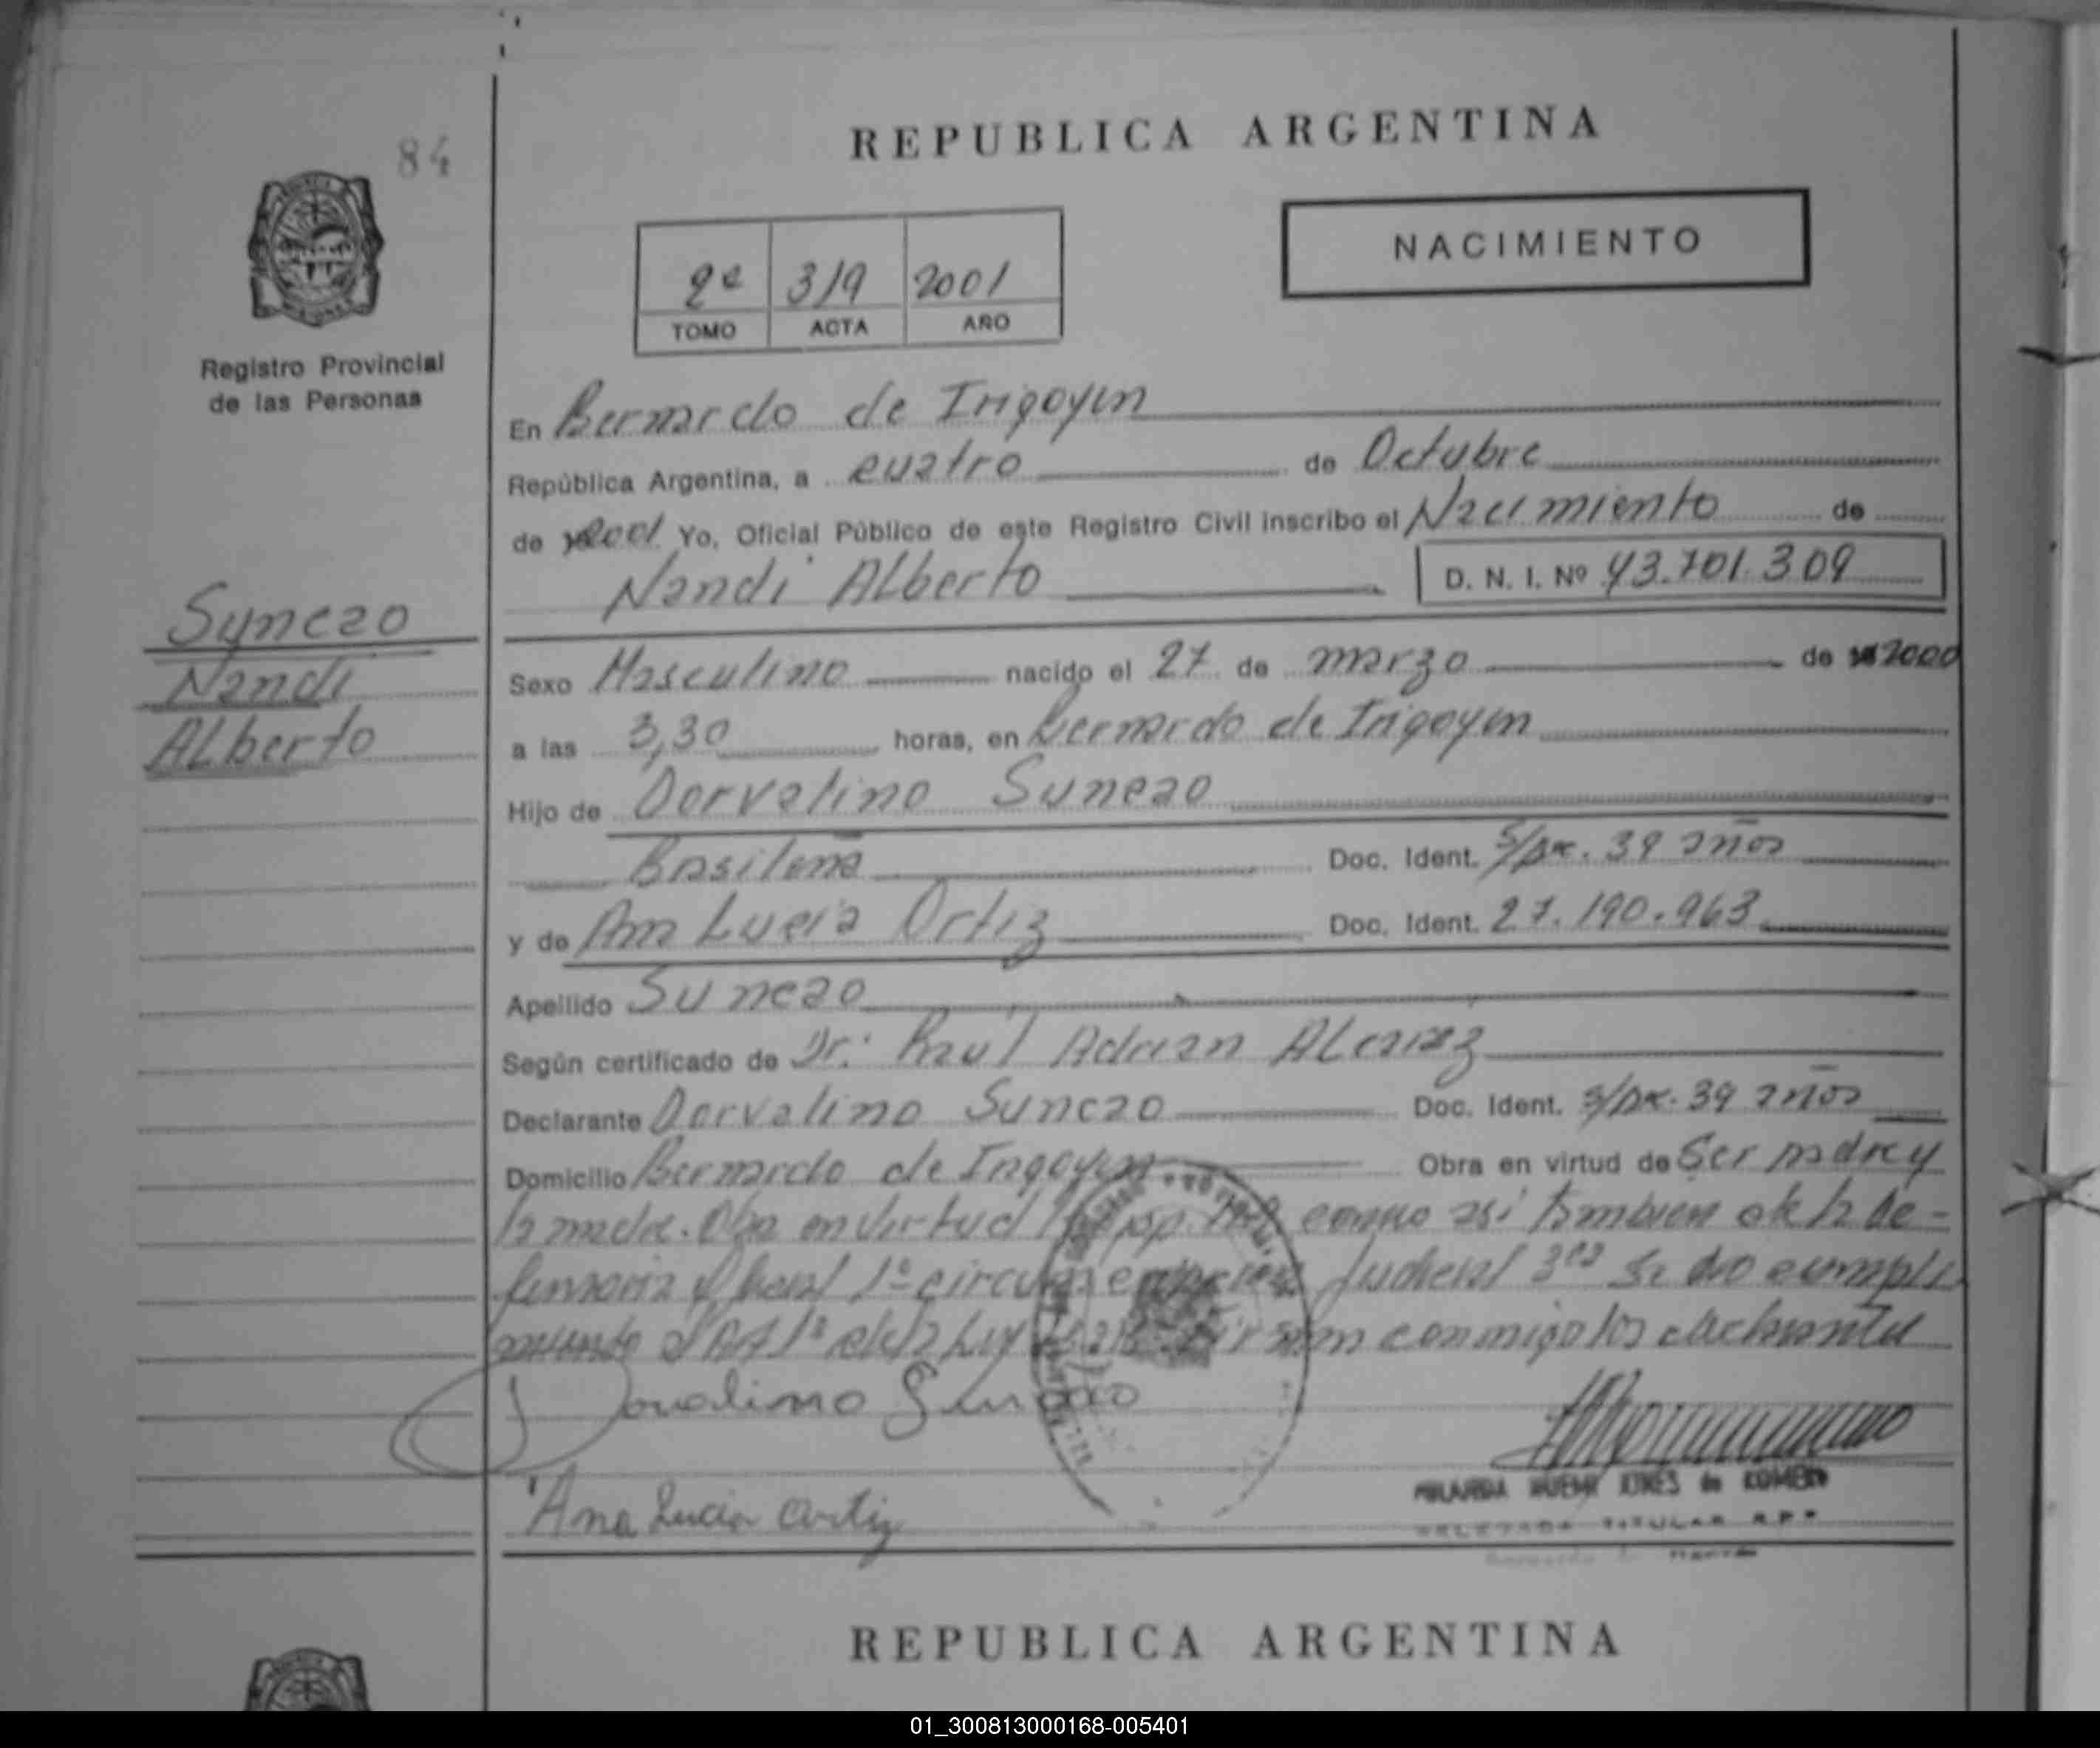 84
REPUBLICA ARGENTINA
NACIMIENTO
2º 319 2001
TOMO ACTA AÑO
Registro Provincial
de las Personas
En Bernardo de Irigoyen
República Argentina, a cuatro de Octubre
de 2001 Yo, Oficial Público de este Registro Civil inscribo el Nacimiento de
Nandi Alberto D. N. I. Nº 43.701.309
Suneao
Nandi
Alberto
Sexo Masculino nacido el 27 de marzo de 2000
a las 3,30 horas, en Bernardo de Irigoyen
Hijo de Dorvalino Suneao
Brasileña Doc. Ident. 39 años
y de Ana Lucia Ortiz Doc. Ident. 27.190.963
Apellido Suneao
Según certificado de Dr. Raul Adrian
Declarante Dorvalino Suneao Doc. Ident. 39 años
Domicilio Bernardo de Irigoyen Obra en virtud de Ser padre y
la madre. Obra en virtud como asi tambien de la De-
fensoria 1º circunscripcion Judicial 3ra
el Art 1º de la Ley Firman conmigo los declarantes
Dorvalino
Ana Lucia Ortiz
TITULAR
REPUBLICA ARGENTINA
01_300813000168-005401